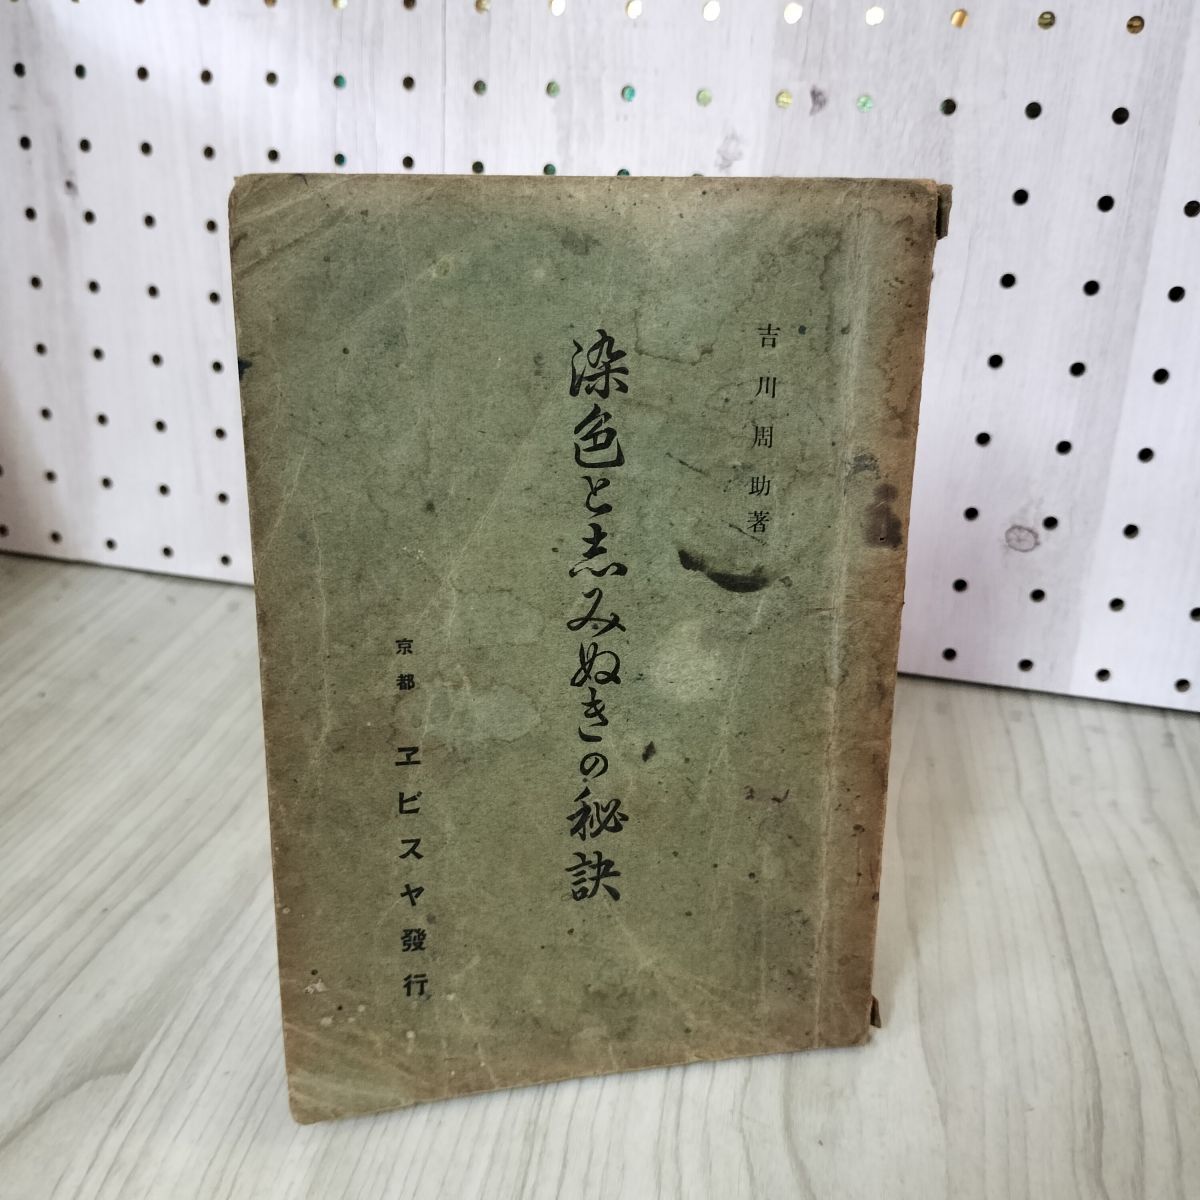 吉川周助著
染色と志みぬきの秘訣
京都 ヱビスヤ發行